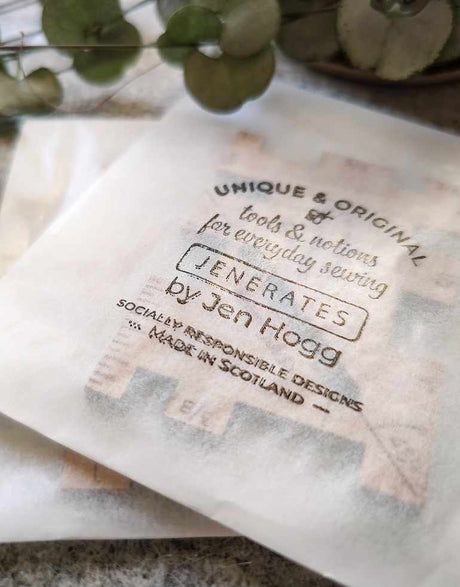 UNIQUE & ORIGINAL
tools & notions
for everyday sewing
JENERATES
by Jen Hogg
SOCIALLY RESPONSIBLE DESIGNS
MADE IN SCOTLAND